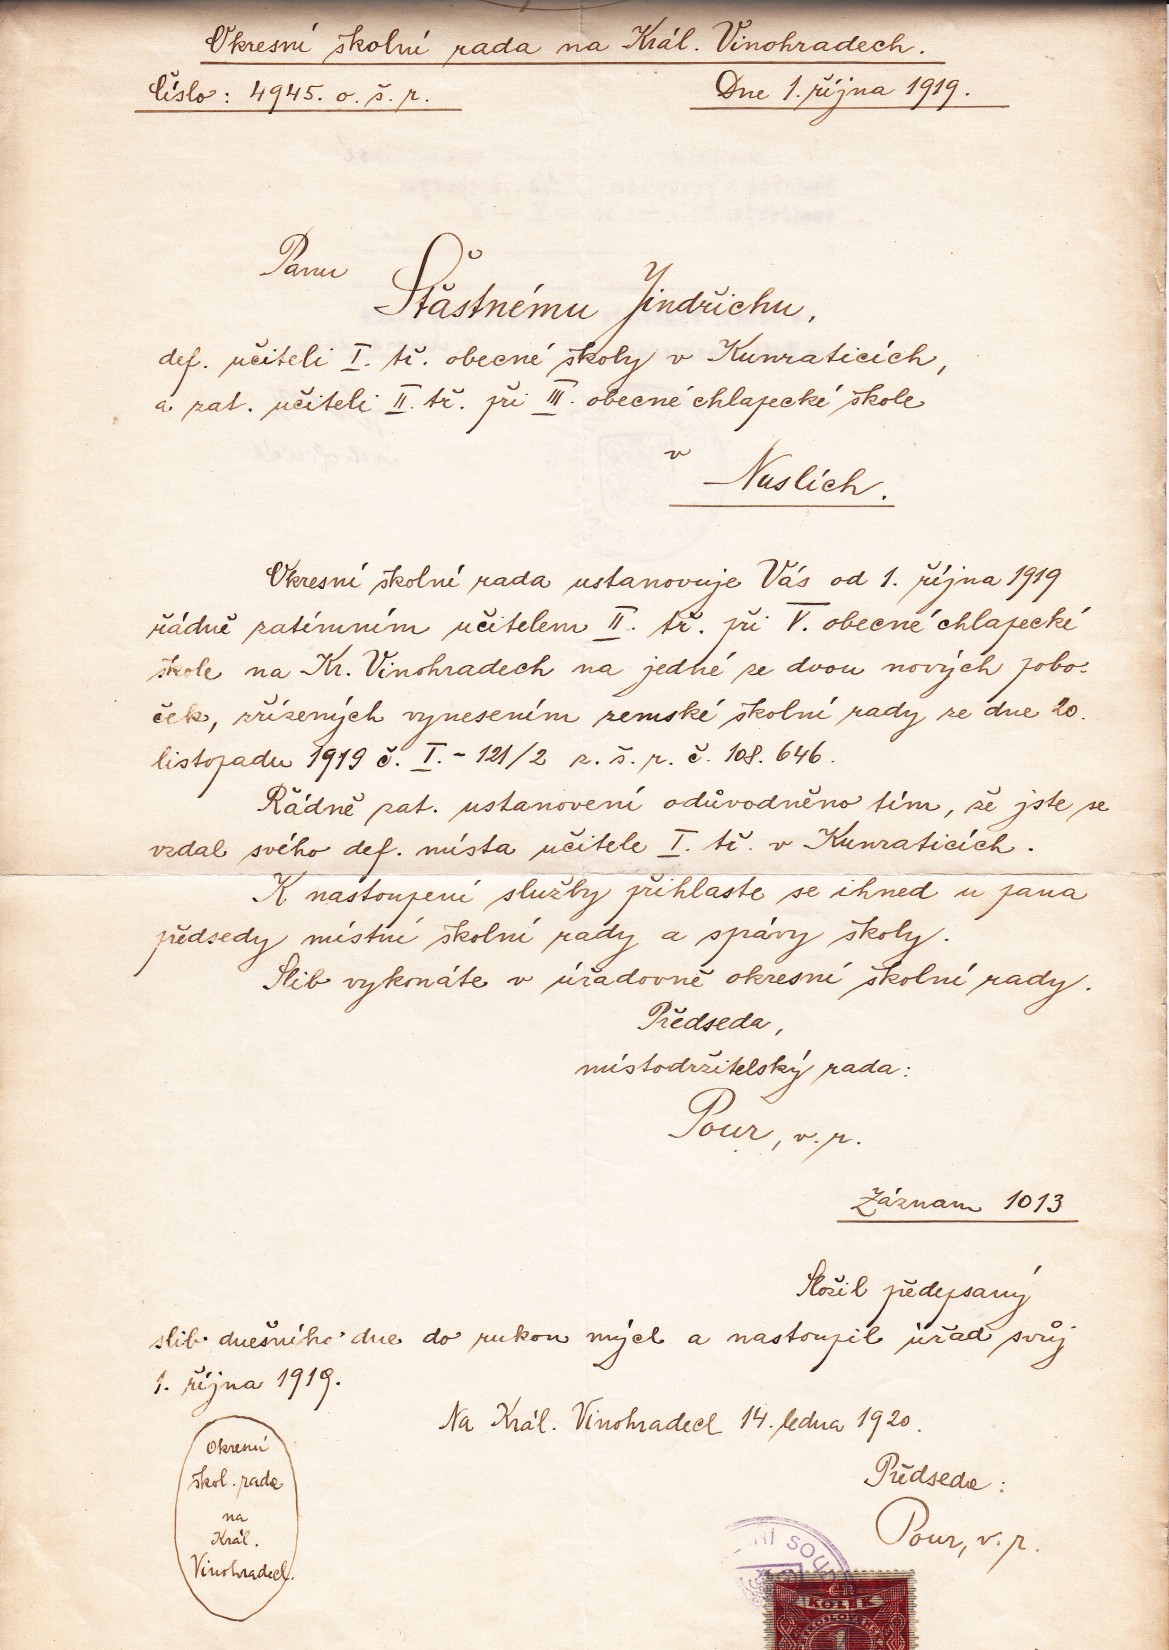 Okresní školní rada na Král. Vinohradech.
Číslo: 4945. o. š. r.
Dne 1. října 1919.
Panu
Šťastnému Jindřichu,
def. učiteli I. tř. obecné školy v Kunraticích,
a zat. učiteli II. tř. při III. obecné chlapecké škole
v
Nuslích.
Okresní školní rada ustanovuje Vás od 1. října 1919
řádně zatímním učitelem II. tř. při V. obecné chlapecké
škole na Kr. Vinohradech na jedné ze dvou nových pobo-
ček, zřízených vynesením zemské školní rady ze dne 20.
listopadu 1919 č. I. - 121/2 z. š. r. č. 108.646.
Řádně zat. ustanovení odůvodněno tím, že jste se
vzdal svého def. místa učitele I. tř. v Kunraticích.
K nastoupení služby přihlaste se ihned u pana
předsedy místní školní rady a správy školy.
Slib vykonáte v úřadovně okresní školní rady.
Předseda,
místodržitelský rada:
Pour, v. r.
Záznam 1013
Složil předepsaný
slib dnešního dne do rukou mých a nastoupil úřad svůj
1. října 1919.
Na Král. Vinohradech 14. ledna 1920.
Předseda:
Pour, v. r.
Okresní
škol. rada
na
Král.
Vinohradech.
NÍ SOU
KOLEK
1